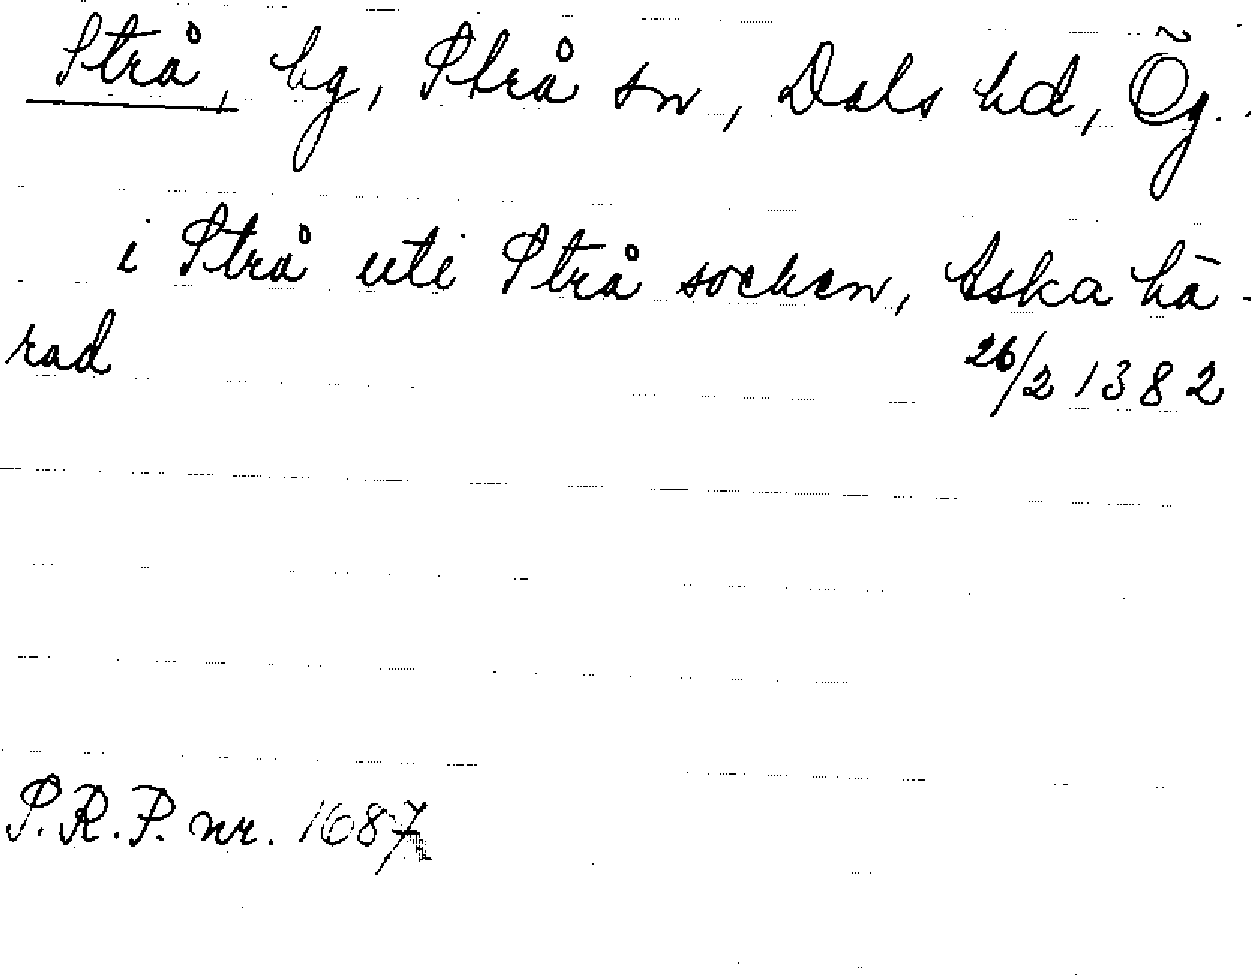 Strå, by, Strå sn, Dals hd, Ög.
i Strå uti Strå socken, Aska hä-
rad 26/2 1382
S.R.P. nr. 1687